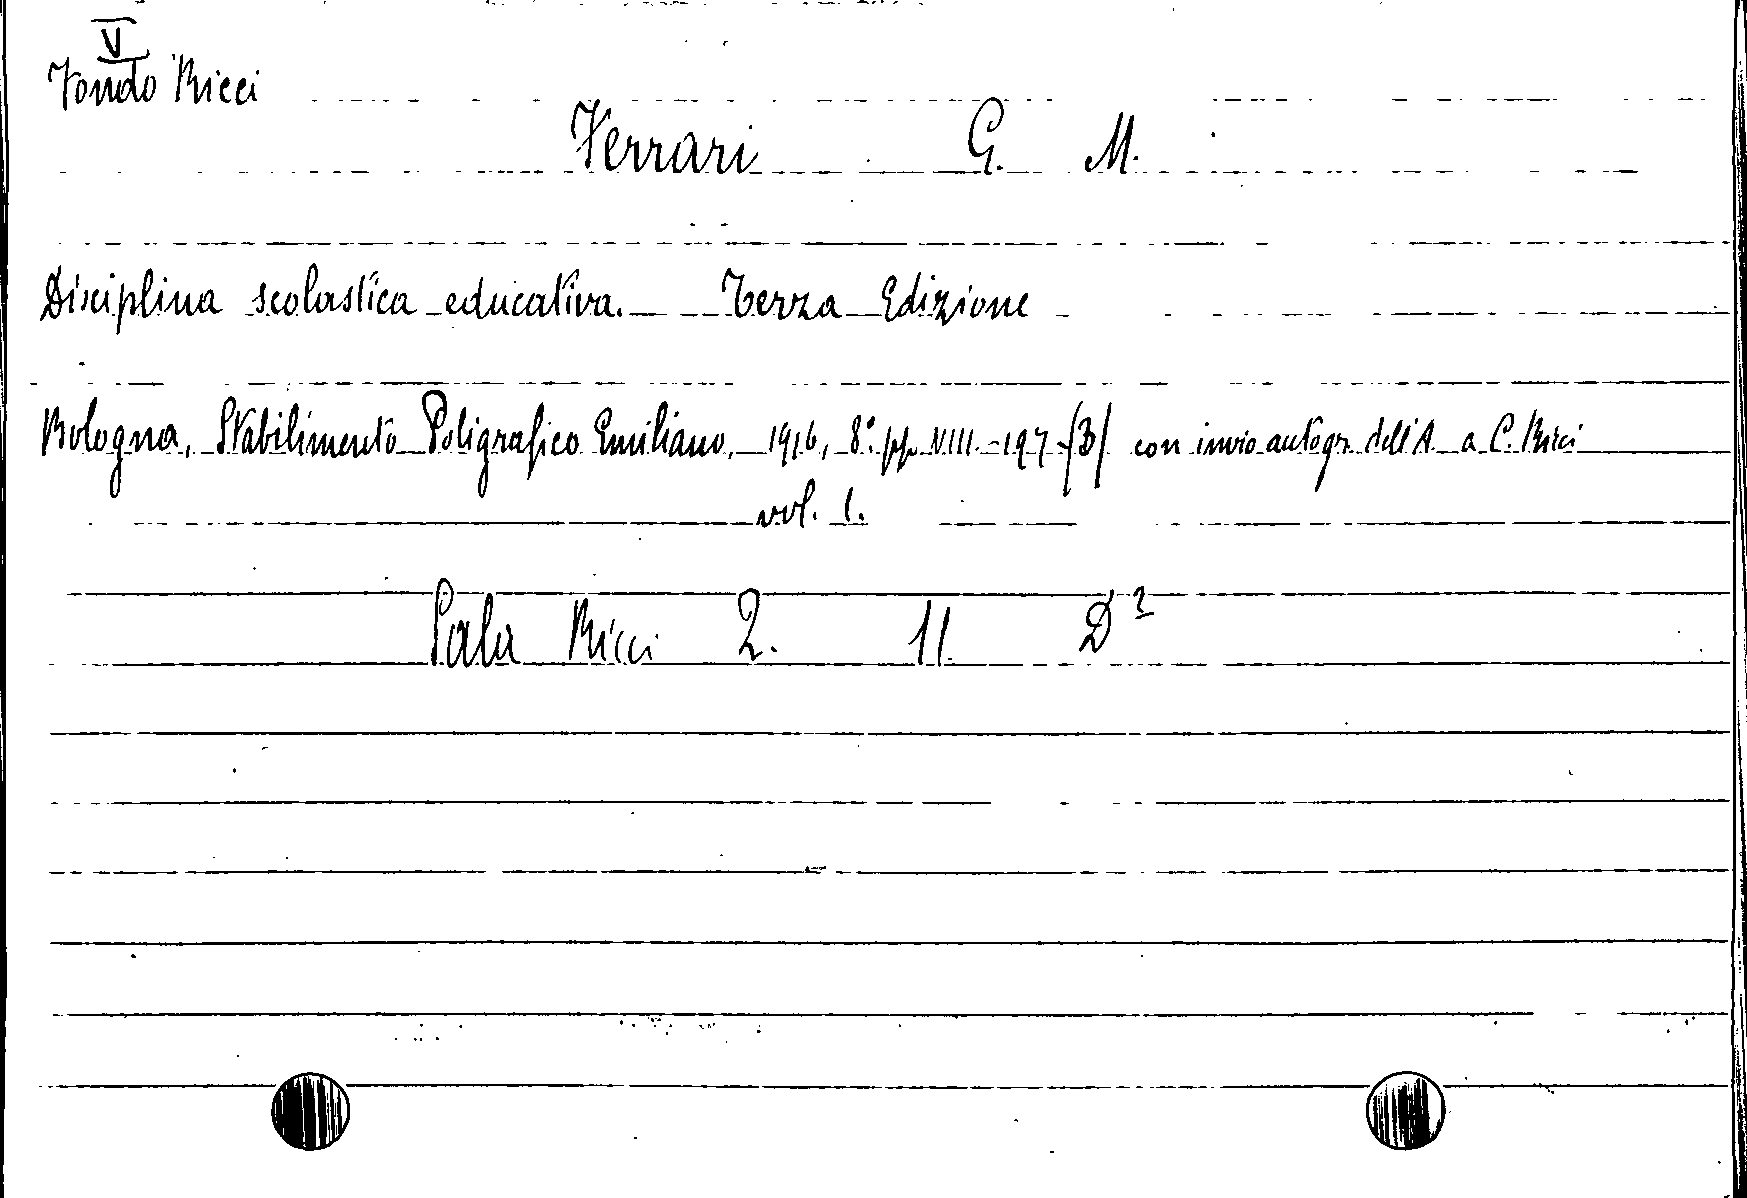 V
Fondo Ricci
Ferrari G. M.
Disciplina scolastica educativa. - Terza Edizione
Bologna, Stabilimento Poligrafico Emiliano, 1916, 8° pp. VIII - 197 - (3) con invio autogr. dell'A. a C. Ricci
vol. 1.
Sala Ricci 2. 11 D²